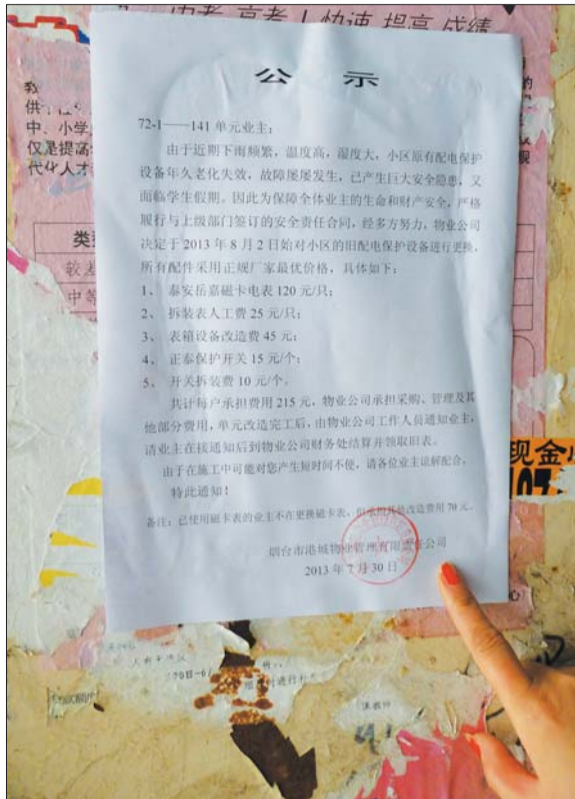 中考 高考 快速 提高 成绩
公 示
72-1——141 单元业主:
由于近期下雨频繁,温度高,湿度大,小区原有配电保护
设备年久老化失效,故障屡屡发生,已产生巨大安全隐患,又
面临学生假期。因此为保障全体业主的生命和财产安全,严格
履行与上级部门签订的安全责任合同,经多方努力,物业公司
决定于 2013 年 8 月 2 日始对小区的旧配电保护设备进行更换,
所有配件采用正规厂家最优价格,具体如下:
1、 泰安岳嘉磁卡电表 120 元/只;
2、 拆装表人工费 25 元/只;
3、 表箱设备改造费 45 元;
4、 正泰保护开关 15 元/个;
5、 开关拆装费 10 元/个。
共计每户承担费用 215 元,物业公司承担采购、管理及其
他部分费用,单元改造完工后,由物业公司工作人员通知业主,
请业主在接通知后到物业公司财务处结算并领取旧表。
由于在施工中可能对您产生短时间不便,请各位业主谅解配合。
特此通知!
备注:已使用磁卡表的业主不在更换磁卡表,但承担其他改造费用 70 元。
烟台市港城物业管理有限责任公司
2013 年 7 月 30 日
中、小学
仅是提高
代化人才
类
较差
中等
现金